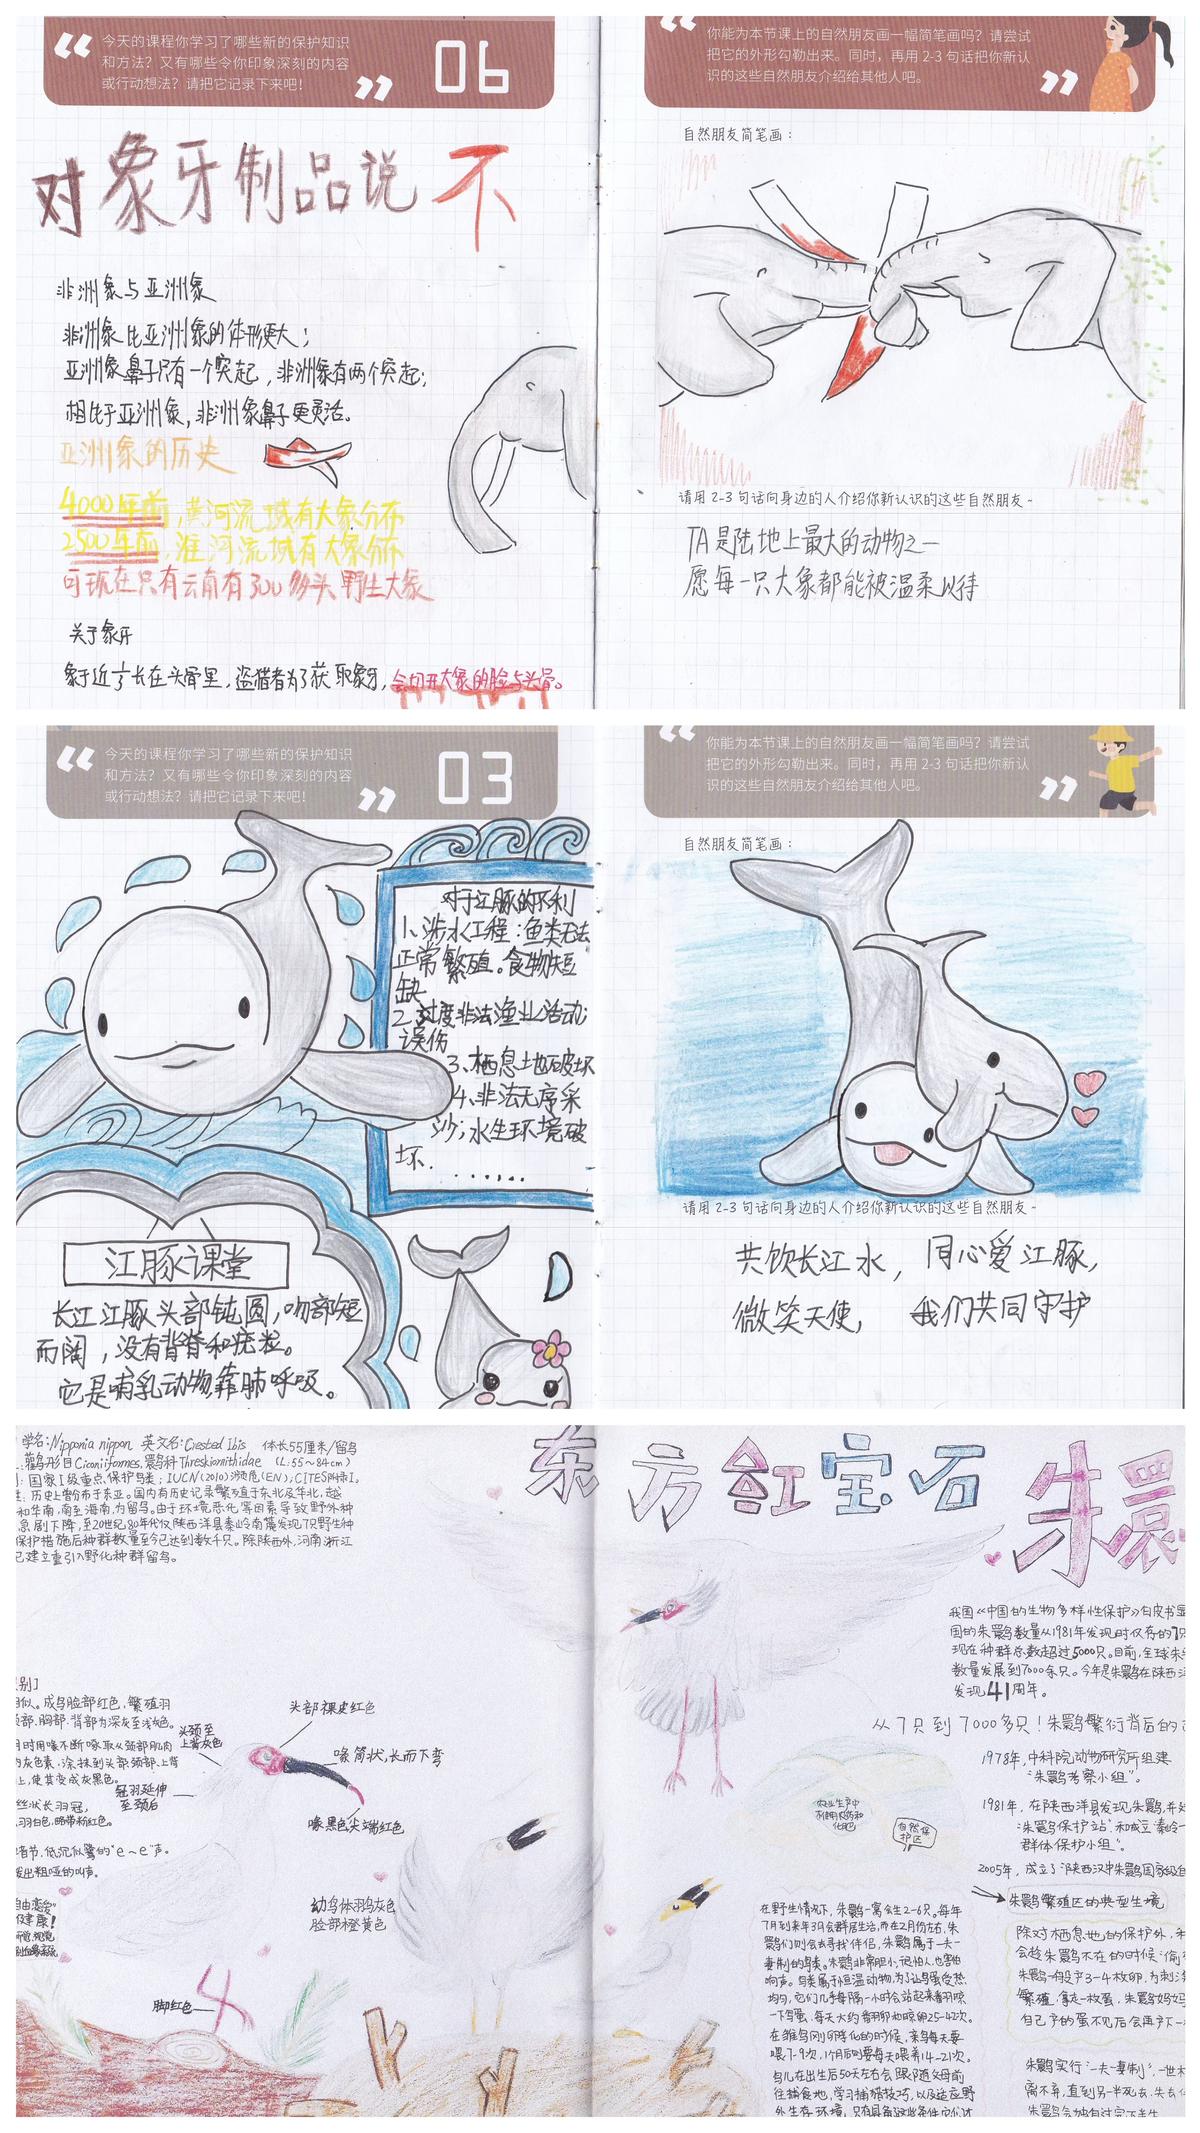 今天的课程你学习了哪些新的保护知识
和方法？又有哪些令你印象深刻的内容
或行动想法？请把它记录下来吧！
06
对象牙制品说不
非洲象与亚洲象
非洲象比亚洲象的体形更大；
亚洲象鼻子只有一个突起，非洲象有两个突起；
相比于亚洲象，非洲象鼻子更灵活。
亚洲象的历史
4000年前，黄河流域有大象分布
2500年前，淮河流域有大象分布
可现在只有云南有300多头野生大象
关于象牙
象牙近⅓长在头骨里，盗猎者为了获取象牙，会切开大象的脸与头骨。
你能为本节课上的自然朋友画一幅简笔画吗？请尝试
把它的外形勾勒出来。同时，再用 2-3 句话把你新认
识的这些自然朋友介绍给其他人吧。
自然朋友简笔画：
请用 2-3 句话向身边的人介绍你新认识的这些自然朋友~
TA是陆地上最大的动物之一
愿每一只大象都能被温柔以待
今天的课程你学习了哪些新的保护知识
和方法？又有哪些令你印象深刻的内容
或行动想法？请把它记录下来吧！
03
对于江豚的不利
1、涉水工程：鱼类无法
正常繁殖。食物短
缺
2、过度非法渔业活动：
误伤
3、栖息土地破坏
4、非法无序采
沙；水生环境破
坏.
......
江豚课堂
长江江豚头部钝圆，吻部短
而阔，没有背脊和疣粒。
它是哺乳动物靠肺呼吸。
你能为本节课上的自然朋友画一幅简笔画吗？请尝试
把它的外形勾勒出来。同时，再用 2-3 句话把你新认
识的这些自然朋友介绍给其他人吧。
自然朋友简笔画：
请用 2-3 句话向身边的人介绍你新认识的这些自然朋友~
共饮长江水，同心爱江豚，
微笑天使，我们共同守护
学名：Nipponia nippon 英文名：Crested Ibis 体长55厘米/留鸟
鹳形目Ciconiiformes，鹮科Threskiornithidae (L:55~84cm)
国家Ⅰ级重点保护鸟类；IUCN(2010)濒危(EN)；CITES附录Ⅰ。
历史上曾分布于东亚。国内有历史记录繁殖于东北及华北，越
和华南，偶至海南，为留鸟。由于环境恶化等因素导致野外种
急剧下降，至20世纪80年代仅陕西洋县秦岭南麓发现7只野生种
保护措施后种群数量至今已达到数千只。除陕西外，河南浙江
已建立重引入野化种群留鸟。
东方红宝石
朱鹮
别]
相似。成鸟脸部红色，繁殖羽
颈部、胸部、背部为深灰至浅灰色。
时用喙不断啄取从颈部肌肉
灰色素，涂抹到头部颈部、上背
上，使其变成灰黑色。
丝状长羽冠，
羽白色，略带粉红色。
音节，低沉似鸳的"e~e"声。
发出粗哑的叫声。
头部裸皮红色
头颈至
上背灰色
喙筒状，长而下弯
冠羽延伸
至颈后
喙黑色，尖端红色
幼鸟体羽灰色
脸部橙黄色
脚红色
我国《中国的生物多样性保护》白皮书显
国的朱鹮数量从1981年发现时仅存的7只
现在种群总数超过5000只。目前，全球朱
数量发展到7000余只。今年是朱鹮在陕西
发现41周年。
从7只到7000多只！朱鹮繁衍背后的
1978年，中科院动物研究所组建
"朱鹮考察小组"。
1981年，在陕西洋县发现朱鹮，并
'朱鹮保护站'和成立'秦岭一
群体保护小组'。
2005年，成立了'陕西汉中朱鹮国家级自
农业生产中
不使用农药和
化肥
自然保
护区
朱鹮繁殖区的典型生境
在野生情况下，朱鹮一窝会生2-6只。每年
7月到来年3月会群居生活，而在2月份左右，朱
鹮们则会去寻找伴侣，朱鹮属于一夫一
妻制的鸟类。朱鹮非常胆小，很怕人，也害怕
响声。鸟类属于恒温动物，为了让鸟蛋受热
均匀，它们几乎每隔一小时会站起来翻晾
一下鸟蛋，每天大约翻卵和晾卵25-42次。
在雏鸟刚孵化的时候，亲鸟每天要
喂7-9次，1个月后则要每天喂养14-21次。
鸟儿在出生后50天左右会跟随父母前
往捕食地，学习捕猎技巧，以及适应野
外生存环境，只有具备这些条件它们才
除对栖息地的保护外，
会趁朱鹮不在的时候'偷
朱鹮一般产3-4枚卵，为刺
繁殖，拿走一枚蛋，朱鹮妈妈
自己产的蛋不见后会再产下一
朱鹮实行'一夫一妻制'，一世
离不弃，直到另一半死去，失去